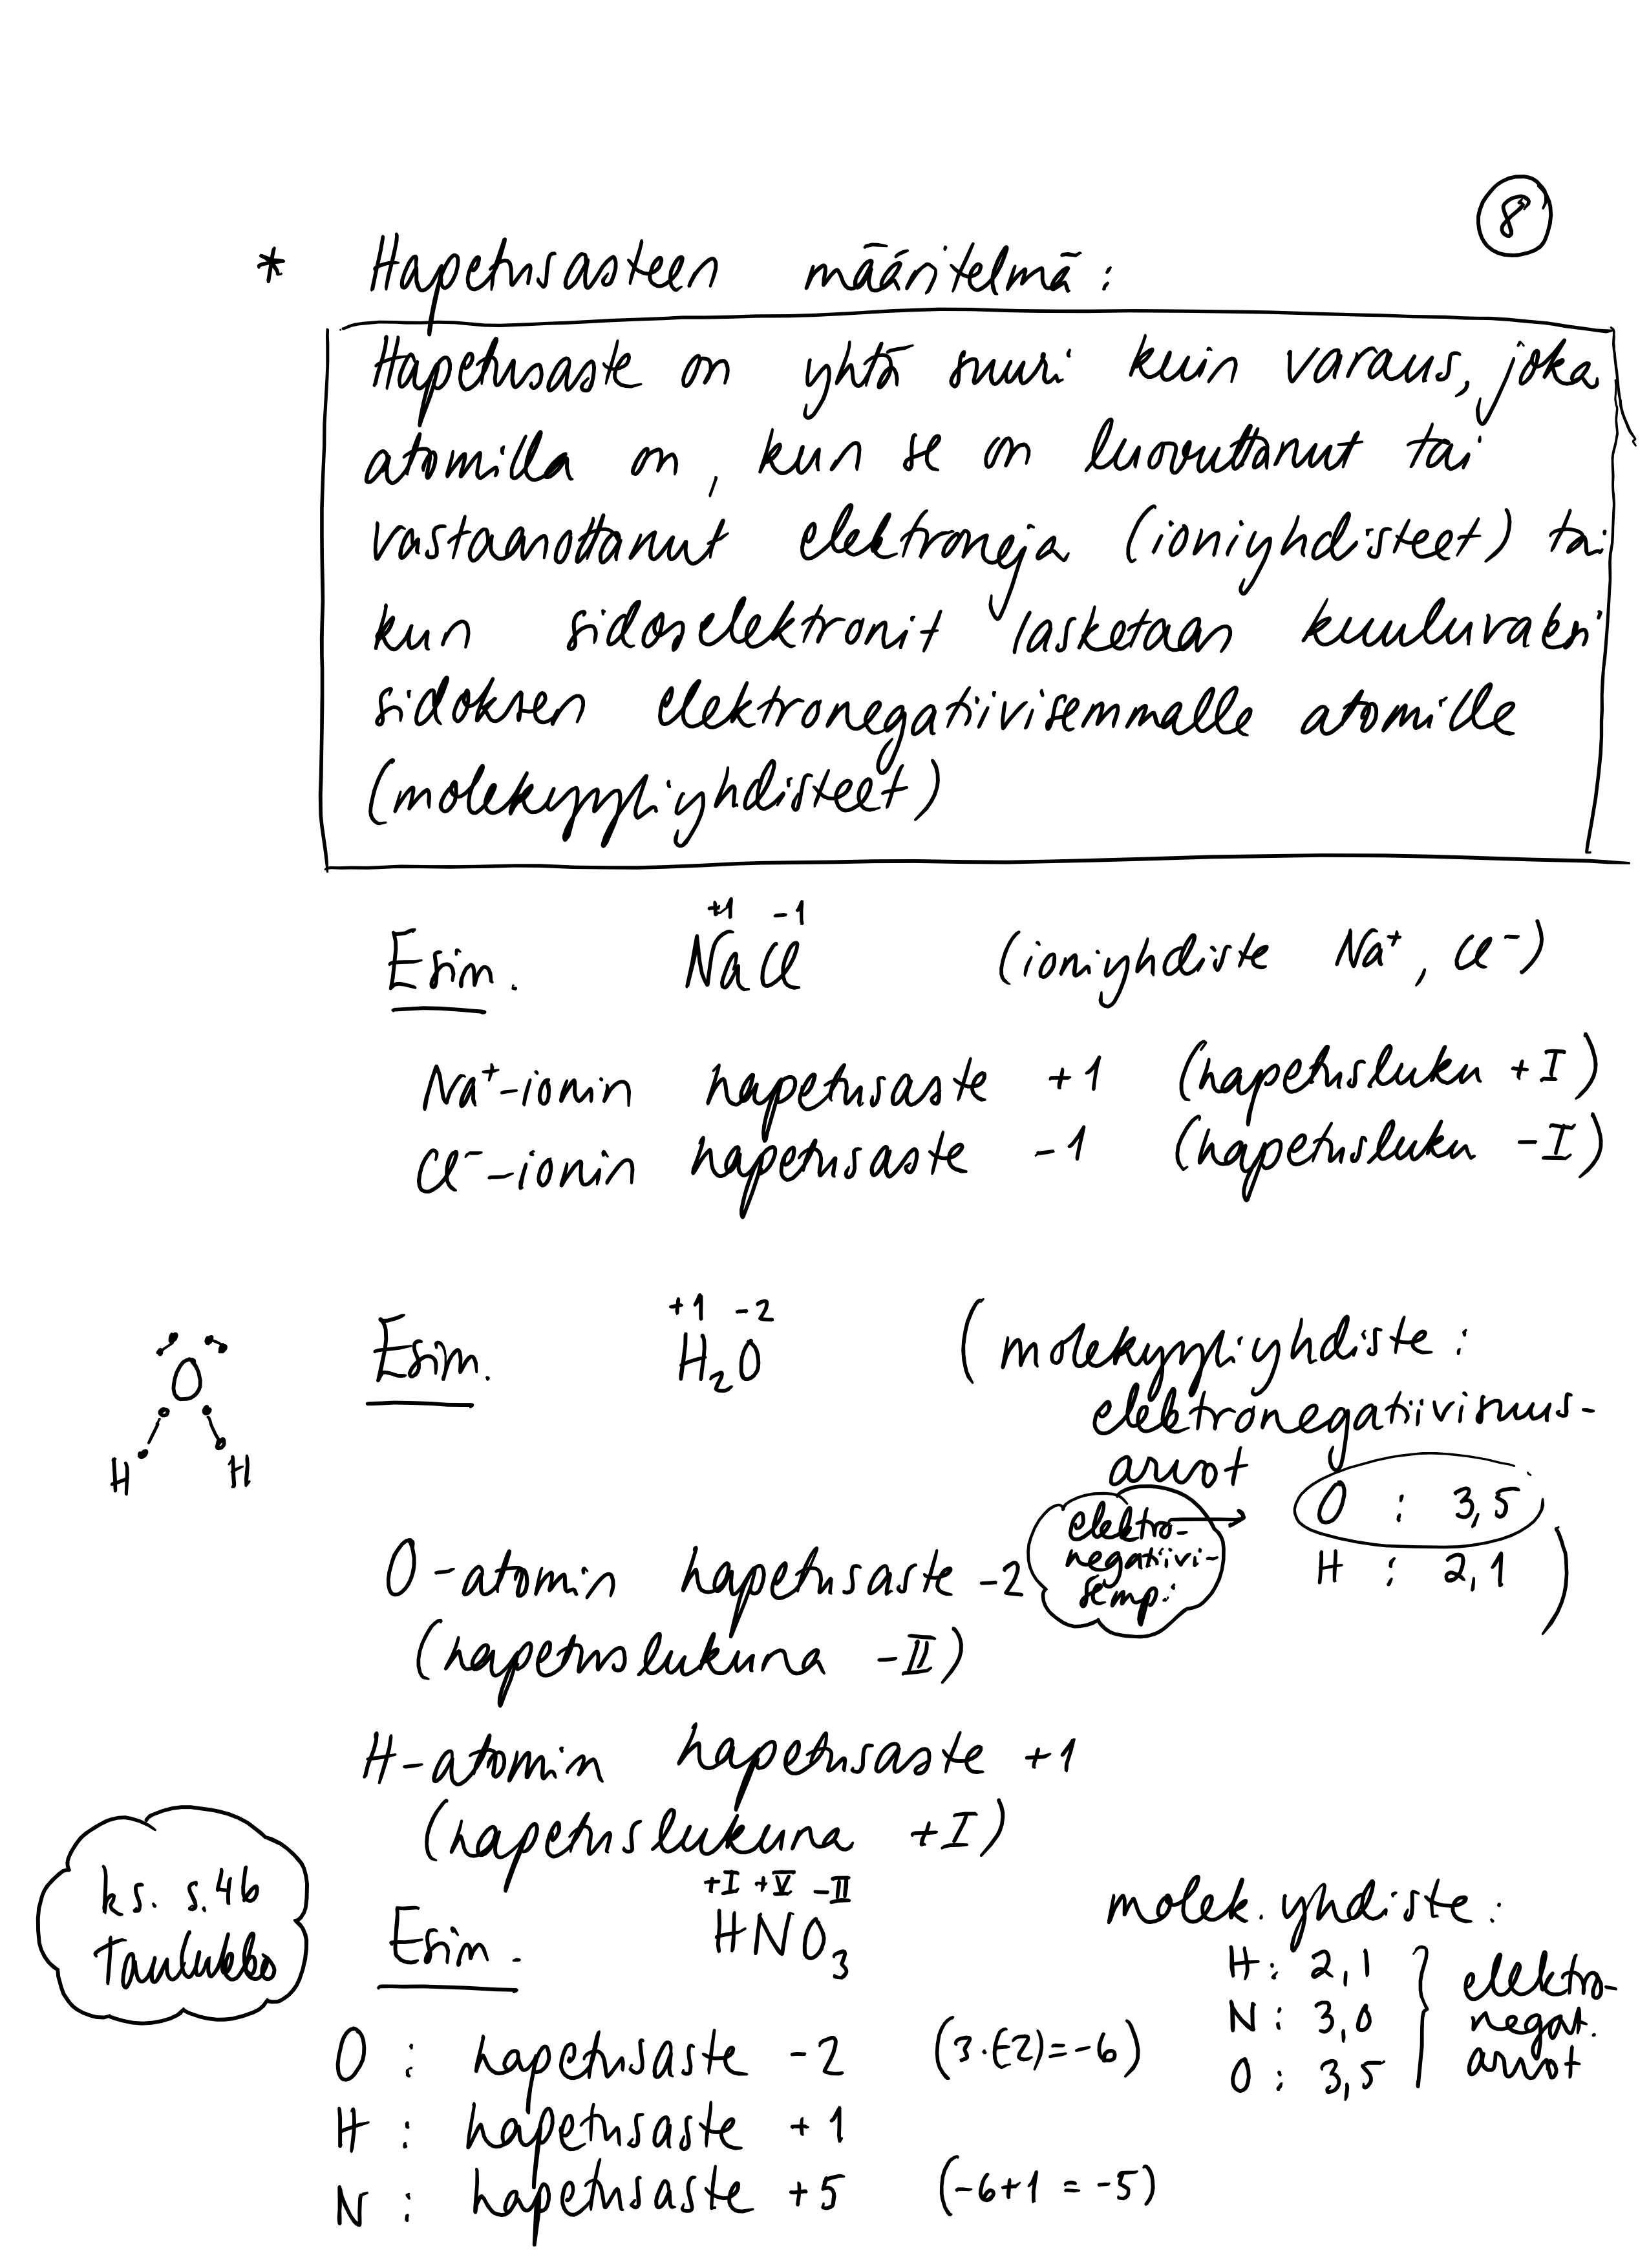 8
* Hapetusasteen määritelmä :
Hapetusaste on yhtä suuri kuin varaus, joka
atomilla on, kun se on luovuttanut tai
vastaanottanut elektroneja (ioniyhdisteet) tai
kun sidoselektronit lasketaan kuuluvaksi
sidoksen elektronegatiivisemmalle atomille
(molekyyliyhdisteet)
+1 -1
Esim. NaCl (ioniyhdiste Na⁺, Cl⁻)
Na⁺-ionin hapetusaste +1 (hapetusluku +I)
Cl⁻-ionin hapetusaste -1 (hapetusluku -I)
+1 -2
Esim. H₂O (molekyyliyhdiste :
elektronegatiivisuus-
arvot
O
H H
O : 3,5
H : 2,1 )
elektro-
negatiivi-
sempi
O-atomin hapetusaste -2
(hapetuslukuna -II)
H-atomin hapetusaste +1
(hapetuslukuna +I)
ks. s.46
Taulukko
+I +V -II
Esim. HNO₃
molek. yhdiste :
H : 2,1
N : 3,0
O : 3,5
elektro-
negat.
arvot
O : hapetusaste -2 (3·(-2)=-6)
H : hapetusaste +1
N : hapetusaste +5 (-6+1 = -5)